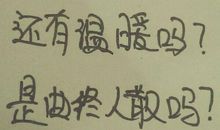 还有温暖吗?
是曲终人散吗?